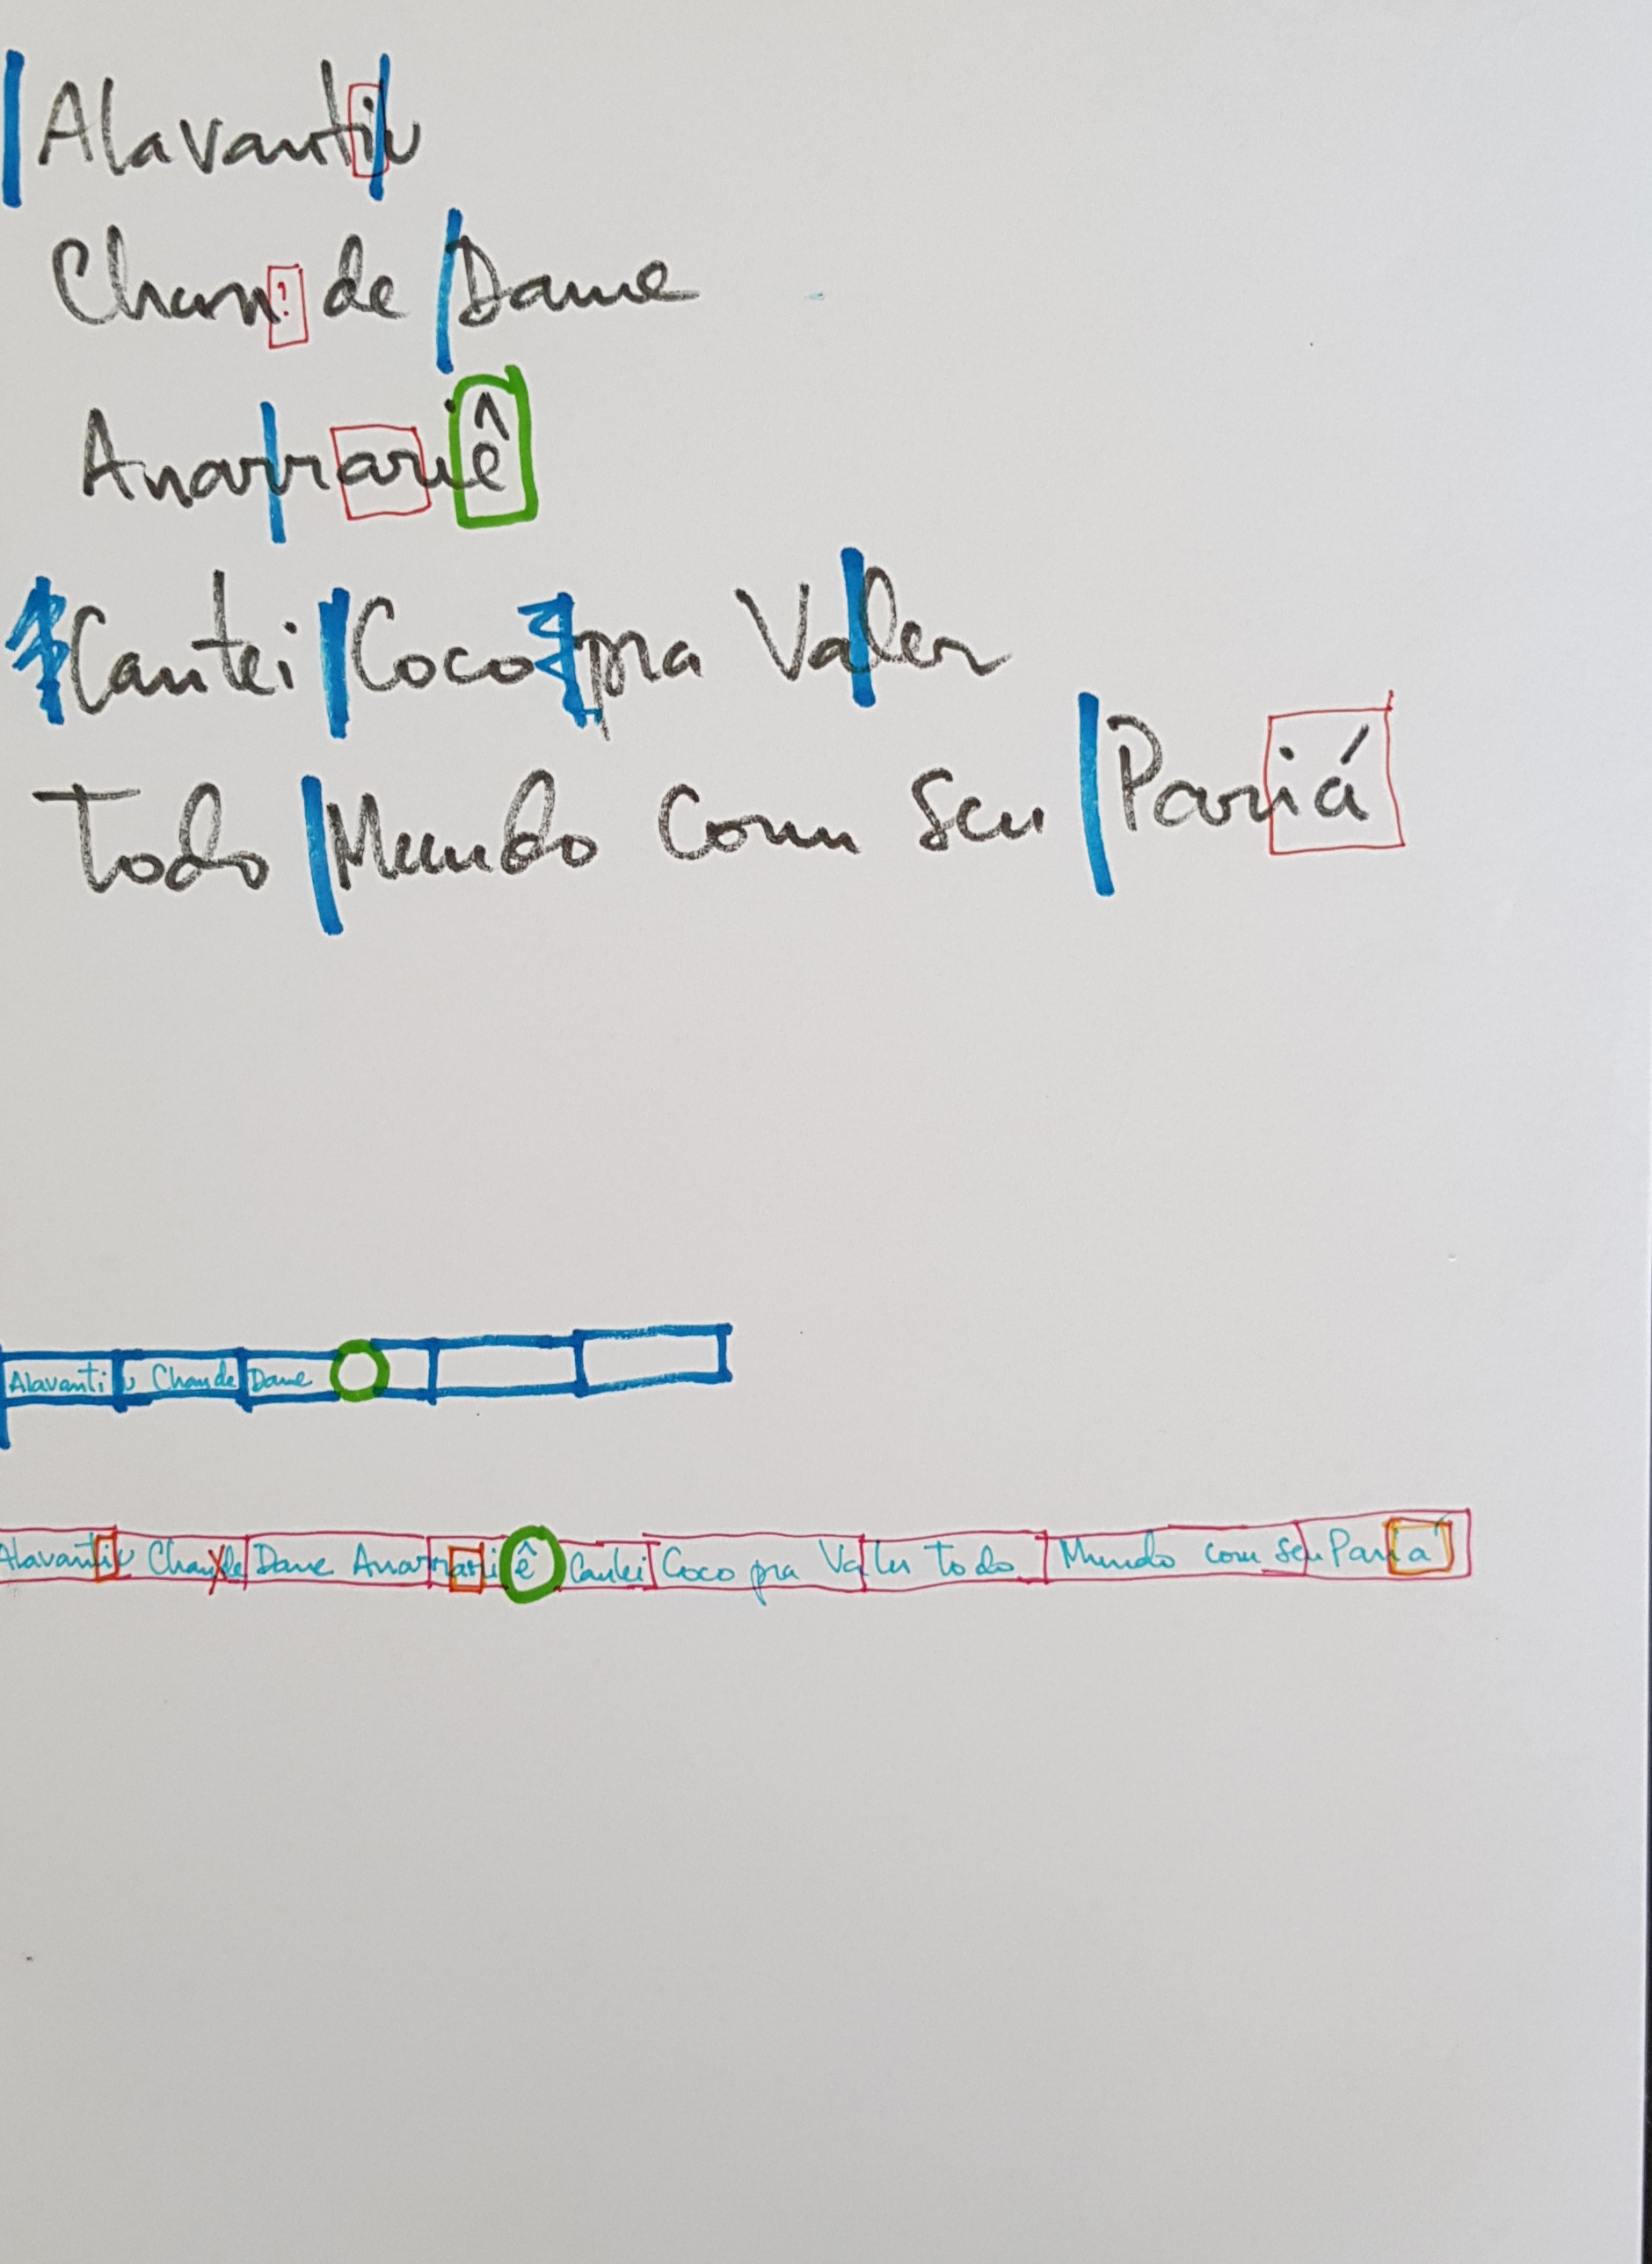 Alavantiu
Chan! de Dame
Anarrariê
Cantei Coco pra Valer
Todo Mundo Com Seu Pariá
Alavantiu Chande Dame
Alavantiu Chande Dame Anarrariê Cantei Coco pra Valer Todo Mundo com seu Pariá